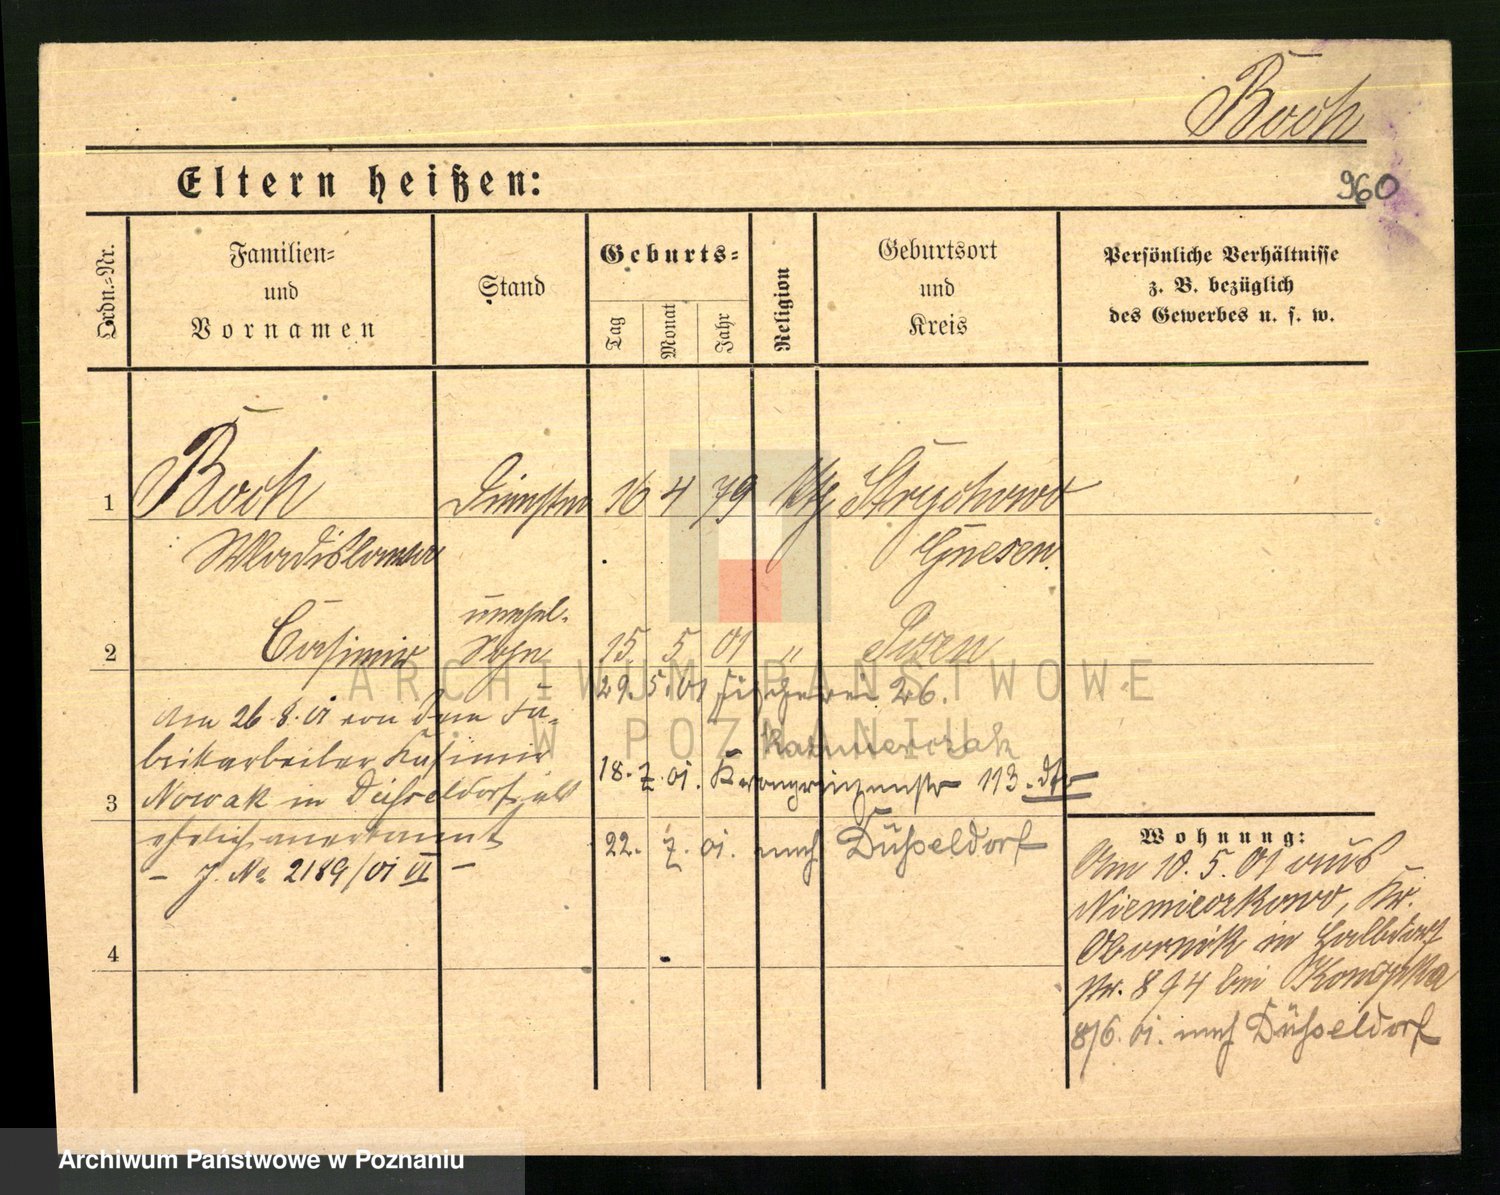 Boch
Eltern heißen:
960
Ordn.-Nr.
Familien-
und
Vornamen
Stand
Geburts-
Tag
Monat
Jahr
Religion
Geburtsort
und
Kreis
Persönliche Verhältnisse
z. B. bezüglich
des Gewerbes u. s. w.
1 Boch 16 4 79 kth Strychowo
Wladislawa Gnesen
unehel.
2 Casimir Sohn 15 5 01 " Posen
29. 5. 01 Fischerei 26.
Am 26.8.01 von dem Fa-
Kazmierczak
brikarbeiter Kasimir
18. 7. 01. Kronprinzenstr 113. dto
3 Nowak in Düsseldorf als
ehelich anerkannt
22. 7. 01. nach Düsseldorf
– J. No 2189/01 VI –
4
Wohnung:
Am 10. 5. 01 aus
Niemieczkowo, Kr.
Obornik in Halbdorf
str. 8 bei Konopka
8/6. 01. nach Düsseldorf
ARCHIWUM PAŃSTWOWE
W POZNANIU
Archiwum Państwowe w Poznaniu